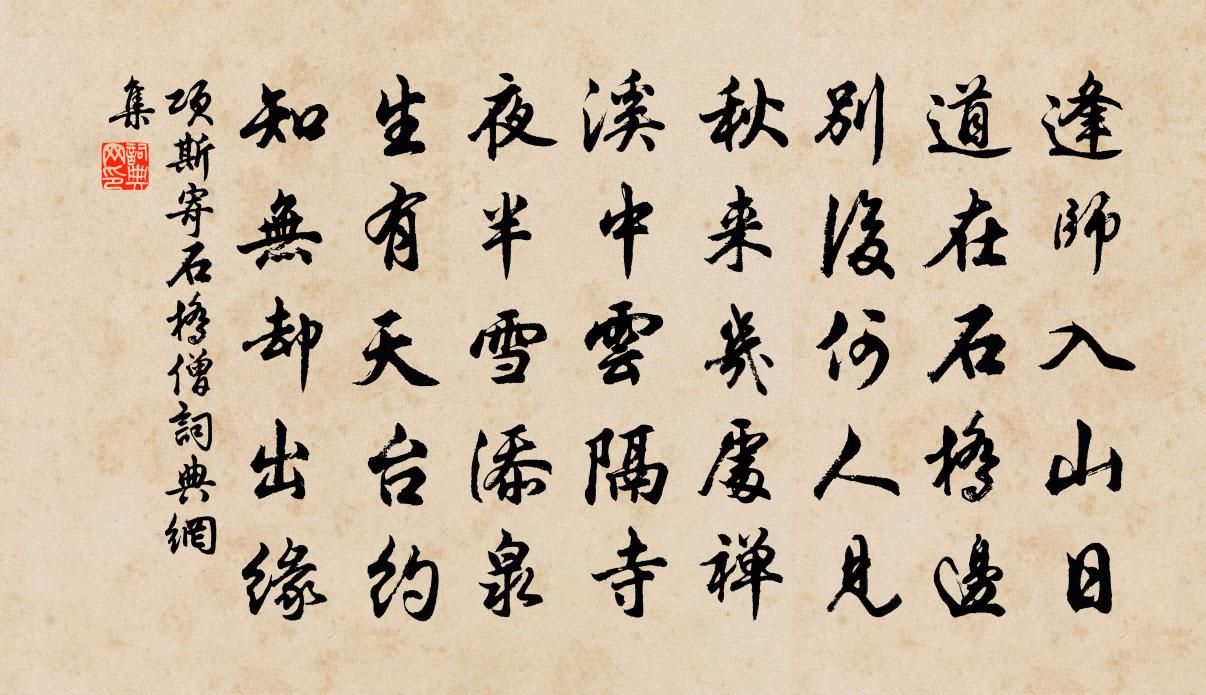 逢師入山日
道在石橋邊
別後何人見
秋来幾處禅
溪中雲隔寺
夜半雪添泉
生有天台約
知無却出緣
項斯寄石橋僧詞典網
集
詞典
网印